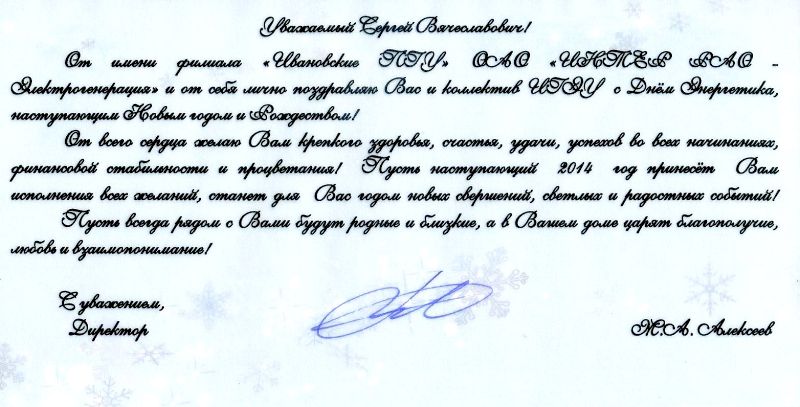 Уважаемый Сергей Вячеславович!
От имени филиала «Ивановские ПГУ» ОАО «ИНТЕР РАО -
Электрогенерация» и от себя лично поздравляю Вас и коллектив ИГЭУ с Днём Энергетика,
наступающим Новым годом и Рождеством!
От всего сердца желаю Вам крепкого здоровья, счастья, удачи, успехов во всех начинаниях,
финансовой стабильности и процветания! Пусть наступающий 2014 год принесёт Вам
исполнения всех желаний, станет для Вас годом новых свершений, светлых и радостных событий!
Пусть всегда рядом с Вами будут родные и близкие, а в Вашем доме царят благополучие,
любовь и взаимопонимание!
С уважением,
Директор М.А. Алексеев